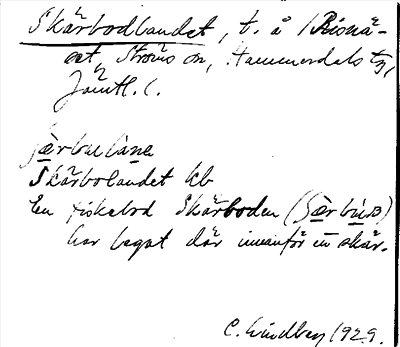 Skärbodlandet, t. å Risnä-
set, Ströms sn, Hammerdals tg,
Jämtl. l.
Skärbolandet kb
En fiskebod Skärboden
har legat där innanför en skär.
C. Lindberg 1929.